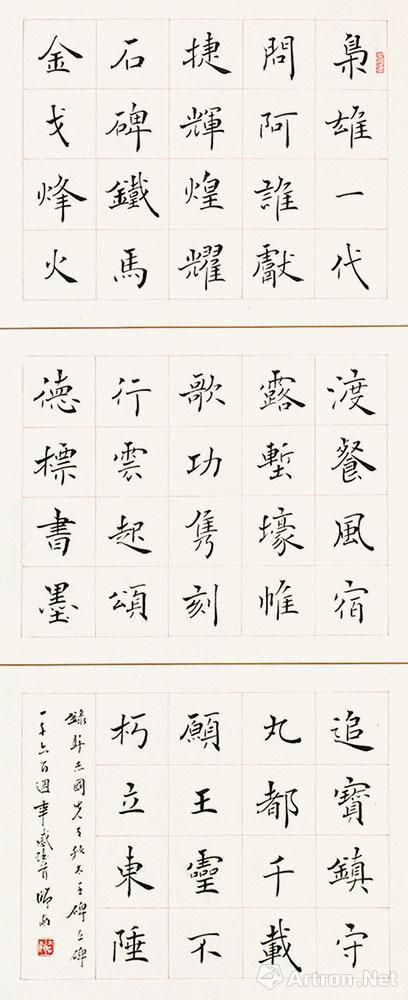 梟雄一代
問阿誰獻
捷輝煌耀
石碑鐵馬
金戈烽火
渡餐風宿
露塹壕帷
歌功雋刻
行雲起頌
德標書墨
追寶鎮守
丸都千載
願王靈不
朽立東陲
志國先生 太王碑立碑
一千六百週年
Artron.Net